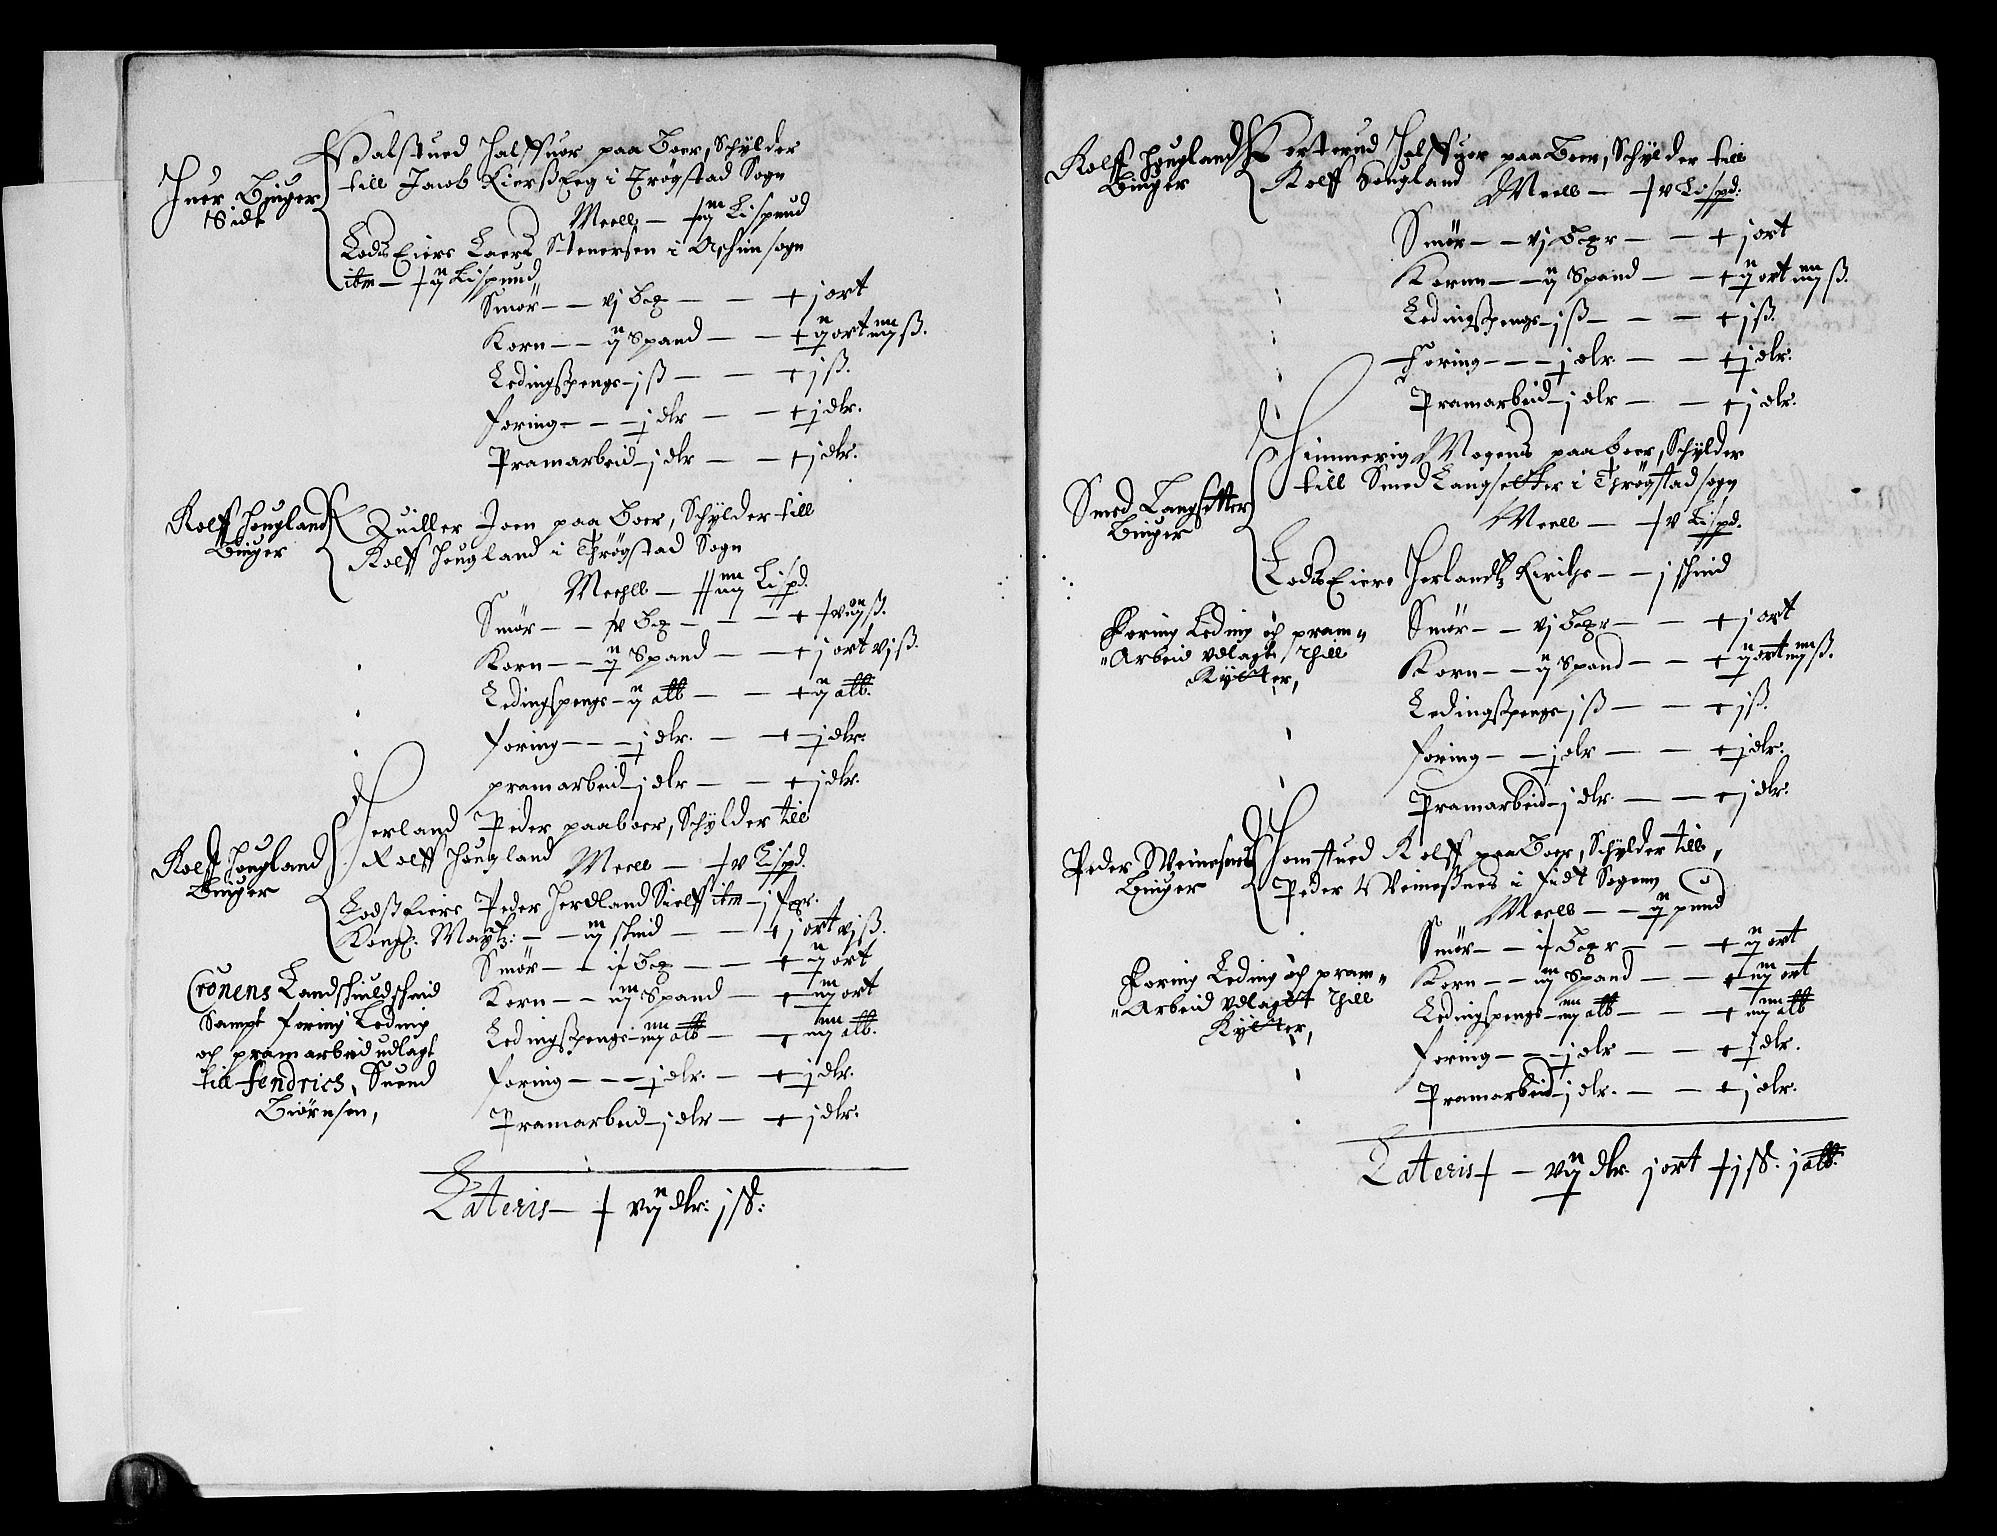 Iuer Biuger
Sidt
Halstued Halffuor paa Boer, Schylder
till Jacob Kierß Eeg i Trögstad Sogn
Meell — ½ iij Lispund
Lods Eiere Laers Stenersen i Aschim sogn
itm — ½ ij Lispund
Smör — — vj Bog — — + j ort
Korn — — ij Spand — — + ij ort iiij ß.
Ledingßpenge — j ß — — + j ß.
foring — — — j dlr — — + j dlr.
Pramarbeid — j dlr — — + j dlr.
Rolff Hougland
Biuger
Quiller Joen paa Boer, Schylder till
Rolff Hougland i Thrögstad Sogn
Meehll — iiij Lispd.
Smör — — Bog — — +
Korn — — ij Spand — — + j ort vj ß.
Ledingspenge — ij alb — — + ij alb.
foring — — — j dlr. — — + j dlr.
pramarbeid — j dlr — — + j dlr.
Rolff Hougland
Biuger
Herland Peder paa boer, Schylder till
Rolff Hougland Meell — ½ v Lispd.
Lodß Eiere Peder Herland Sielff itm — j
Kongl: Maytz: — — iij schind — — + j ort vj ß.
Smör — — Bog — — + ij ort
Korn — — iij Spand — + iij ort
Ledingßpenge — iiij alb — + iiij alb.
foring — — — j dlr. — + j dlr.
Pramarbeid — j dlr — + j dlr.
Cronens Landschuldschind
Sampt foring Leding
och pramarbeid udlagt
till fendrich, Suend
Biörnsen,
Lateris — ½ vij dlr: j ß:
Rolff Hougland
Biuger
Korterud Halffuor paa Boer, Schylder till
Rolff Hougland Meell — ½ v Lispd:
Smör — — vj Bogr — — + j ort
Kornn — — ij Spand — — + ij ort iiij ß.
Ledingßpenge — j ß — — + j ß.
Foring — — — j dlr. — — + j dlr:
Pramarbeid — j dlr — — + j dlr:
Smed Langsetter
Biuger
Himmerig Mogens paa boer, Schylder
till Smed Langsetter i Thrögstad sogn
Meell — ½ v Lispd.
Lods Eiere Herlandtz Kirche — — j schind
Foring Leding och pram"
"Arbeid vdlagt, Thill
Rÿtter,
Smör — — vj Bogr — — + j ort
Korn — — ij Spand — — + ij ort iiij ß.
Ledingßpenge j ß — — + j ß.
foring — — j dlr — — + j dlr:
Pramarbeid — j dlr. — — + j dlr:
Peder Weinesnes
Biuger
Homstued Rolff paa Boer, Schylder till,
Peder Weineßnes i Eidt Sogenn
Meell — — ij pund
Foring Leding och pram"
"Arbeid vdlagdt Thill
Rÿtter,
Smör — — Bogr — — + ij ort
Korn — — iij Spand — — + iij ort
Ledingspenge — iiij alb — — + iiij alb
foring — — — j dlr — — + j dlr.
Pramarbeid — j dlr. — — + j dlr.
Lateris ½ — vij dlr. j ort ½ j ß. j alb.